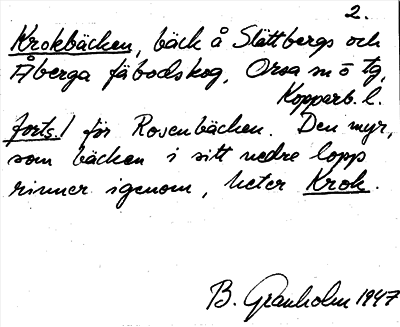 2.
Krokbäcken, bäck å Slättbergs och
Åberga fäbodskog, Orsa sn o tg,
Kopparb. l.
forts./ för Rosenbäcken. Den myr,
som bäcken i sitt nedre lopp
rinner igenom, heter Krok.
B. Granholm 1947